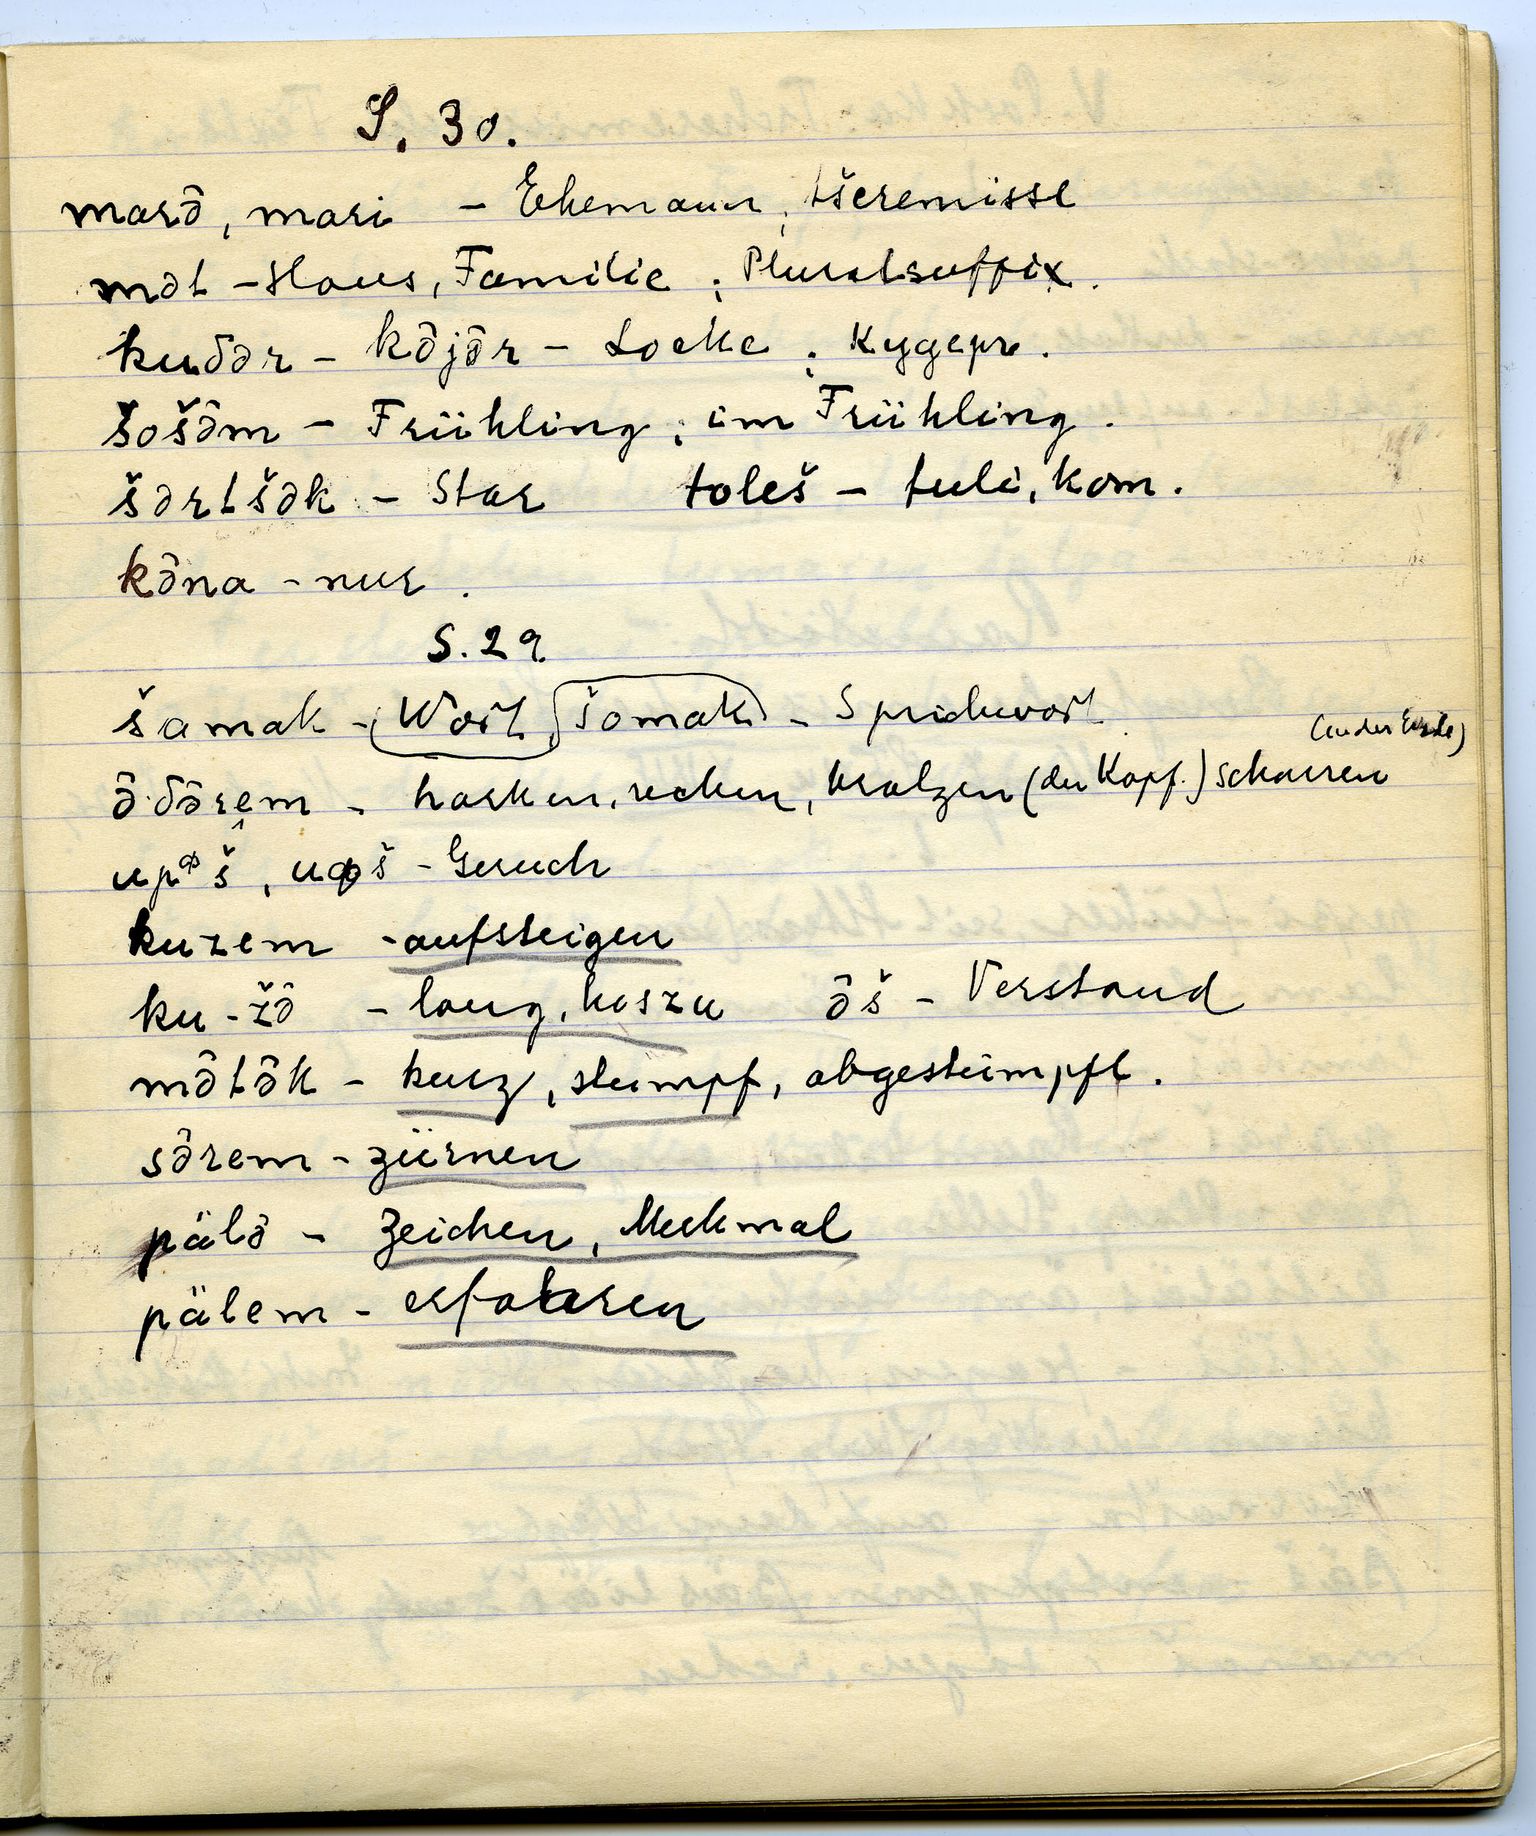 S. 30.
marə̂, mari – Ehemann, tšeremisse
mə̂t – Haus, Familie; Pluralsuffix.
kuδə̂r – kə̂jə̂r – Locke; кудерь.
šošə̂m – Frühling; im Frühling.
šə̂rtšə̂k – Star toleš – tuli, kam.
kə̂na – nur.
S. 29
šamak – Wort, šomak – Sprichwort
(in der Erde)
ə̂·δə̂rem – harken, rechen, kratzen (den Kopf.) scharren
upᶲš, uφš – Geruch
kuzem – aufsteigen
ku-žə̂ – lang, hoszu ə̂š – Verstand
mə̂tə̂k – kurz, stumpf, abgestümpft.
sə̂rem – zürnen
pälə̂ – Zeichen, Merkmal
pälem – erfahren